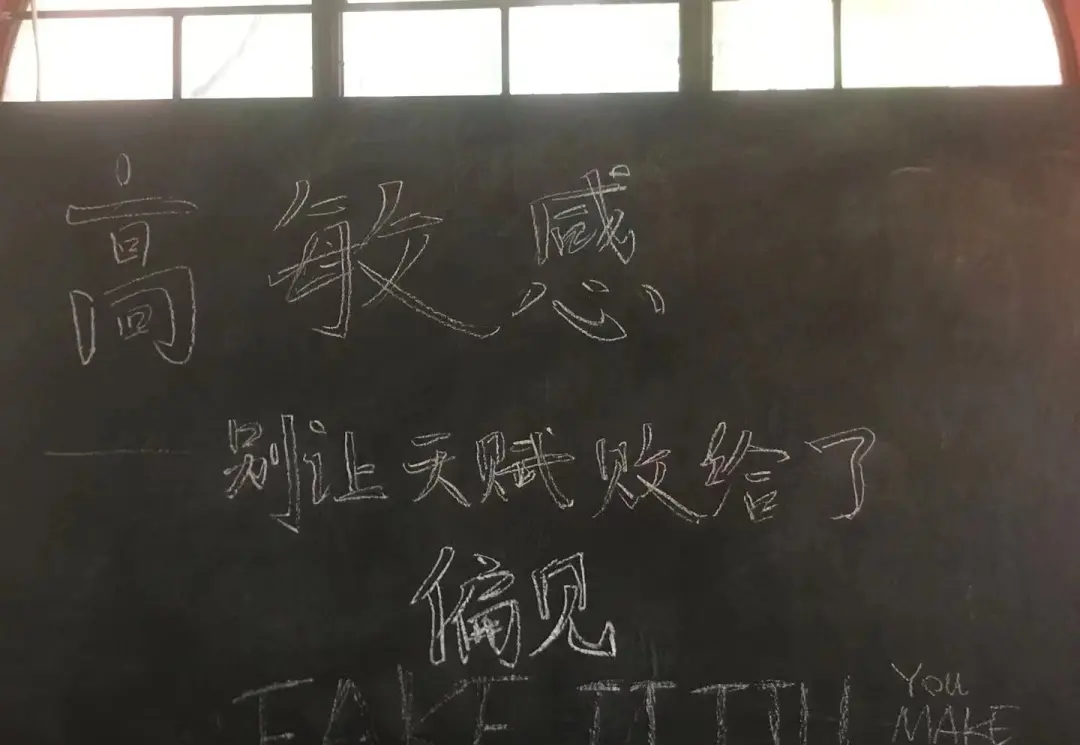 高敏感
——别让天赋败给了
偏见
FAKE IT TILL YOU
MAKE